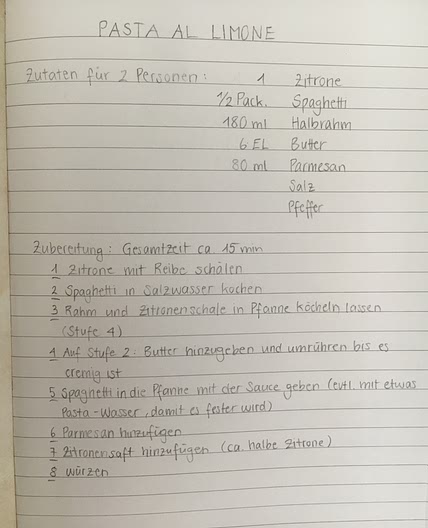 PASTA AL LIMONE
Zutaten für 2 Personen: 1 Zitrone
1/2 Pack. Spaghetti
180 ml Halbrahm
6 EL Butter
80 ml Parmesan
Salz
Pfeffer
Zubereitung: Gesamtzeit ca. 15 min
1 Zitrone mit Reibe schälen
2 Spaghetti in Salzwasser kochen
3 Rahm und Zitronenschale in Pfanne köcheln lassen
(Stufe 4)
4 Auf Stufe 2: Butter hinzugeben und umrühren bis es
cremig ist
5 Spaghetti in die Pfanne mit der Sauce geben (evtl. mit etwas
Pasta-Wasser, damit es fester wird)
6 Parmesan hinzufügen
7 Zitronensaft hinzufügen (ca. halbe Zitrone)
8 würzen